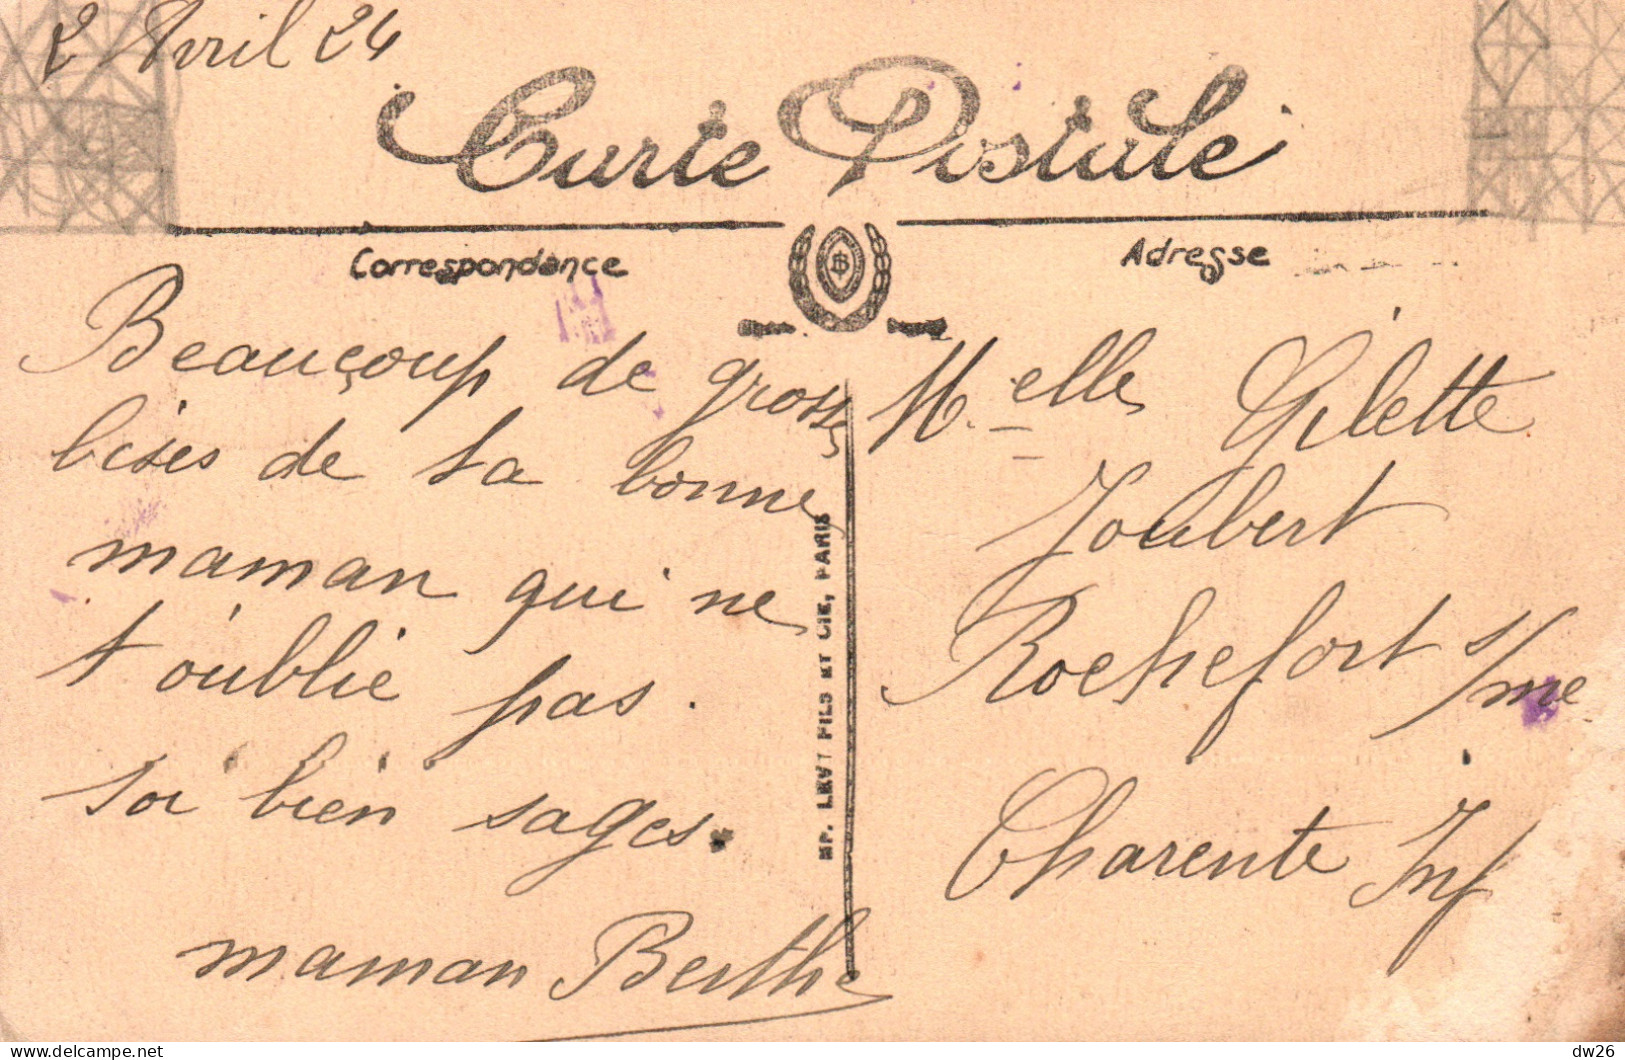 2 Avril 24
Carte Postale
Correspondance
Adresse
Beaucoup de grosses
bises de ta bonne
maman qui ne
t'oublie pas.
soi bien sages.
maman Berthe
Melle Gilette
Joubert
Rochefort s/me
Charente Inf
IMP. LEVY FILS ET CIE, PARIS
dw26